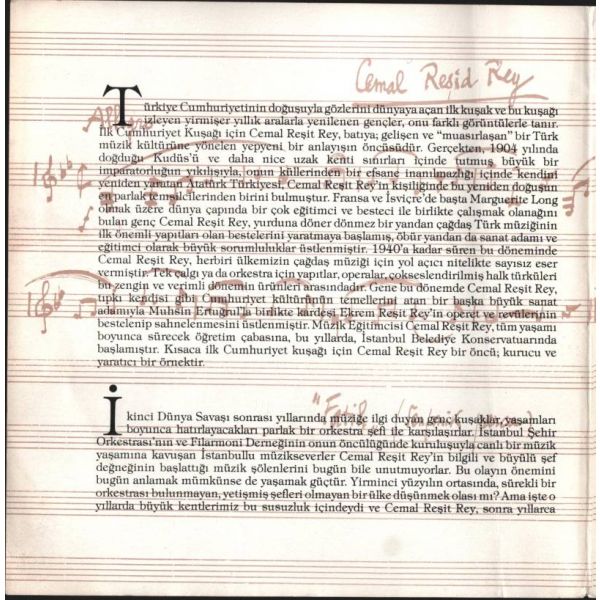 Cemal Reşid Rey
Türkiye Cumhuriyetinin doğuşuyla gözlerini dünyaya açan ilk kuşak ve bu kuşağı
izleyen yirmişer yıllık aralarla yenilenen gençler, onu farklı görüntülerle tanır.
İlk Cumhuriyet Kuşağı için Cemal Reşit Rey, batıya; gelişen ve “muasırlaşan” bir Türk
müzik kültürüne yönelen yepyeni bir anlayışın öncüsüdür. Gerçekten, 1904 yılında
doğduğu Kudüs’ü ve daha nice uzak kenti sınırları içinde tutmuş büyük bir
imparatorluğun yıkılışıyla, onun küllerinden bir efsane inanılmazlığı içinde kendini
yeniden yaratan Atatürk Türkiyesi, Cemal Reşit Rey’in kişiliğinde bu yeniden doğuşun
en parlak temsilcilerinden birini bulmuştur. Fransa ve İsviçre’de başta Marguerite Long
olmak üzere dünya çapında bir çok eğitimci ve besteci ile birlikte çalışmak olanağını
bulan genç Cemal Reşit Rey, yurduna döner dönmez bir yandan çağdaş Türk müziğinin
ilk önemli yapıtları olan bestelerini yaratmaya başlamış, öbür yandan da sanat adamı ve
eğitimci olarak büyük sorumluluklar üstlenmiştir. 1940’a kadar süren bu döneminde
Cemal Reşit Rey, herbiri ülkemizin çağdaş müziği için yol açıcı nitelikte sayısız eser
vermiştir. Tek çalgı ya da orkestra için yapıtlar, operalar, çokseslendirilmiş halk türküleri
bu zengin ve verimli dönemin ürünleri arasındadır. Gene bu dönemde Cemal Reşit Rey,
tıpkı kendisi gibi Cumhuriyet kültürünün temellerini atan bir başka büyük sanat
adamıyla Muhsin Ertuğrul’la birlikte kardeşi Ekrem Reşit Rey’in operet ve revülerinin
bestelenip sahnelenmesini üstlenmiştir. Müzik Eğitimcisi Cemal Reşit Rey, tüm yaşamı
boyunca sürecek öğretim çabasına, bu yıllarda, İstanbul Belediye Konservatuarında
başlamıştır. Kısaca ilk Cumhuriyet kuşağı için Cemal Reşit Rey bir öncü; kurucu ve
yaratıcı bir örnektir.
İkinci Dünya Savaşı sonrası yıllarında müziğe ilgi duyan genç kuşaklar, yaşamları
boyunca hatırlayacakları parlak bir orkestra şefi ile karşılaşırlar. İstanbul Şehir
Orkestrası’nın ve Filarmoni Derneğinin onun öncülüğünde kuruluşuyla canlı bir müzik
yaşamına kavuşan İstanbullu müzikseverler Cemal Reşit Rey’in bilgili ve büyülü şef
değneğinin başlattığı müzik şölenlerini bugün bile unutmuyorlar. Bu olayın önemini
bugün anlamak mümkünse de yaşamak güçtür. Yirminci yüzyılın ortasında, sürekli bir
orkestrası bulunmayan, yetişmiş şefleri olmayan bir ülke düşünmek olası mı? Ama işte o
yıllarda büyük kentlerimiz bu susuzluk içindeydi ve Cemal Reşit Rey, sonra yıllarca